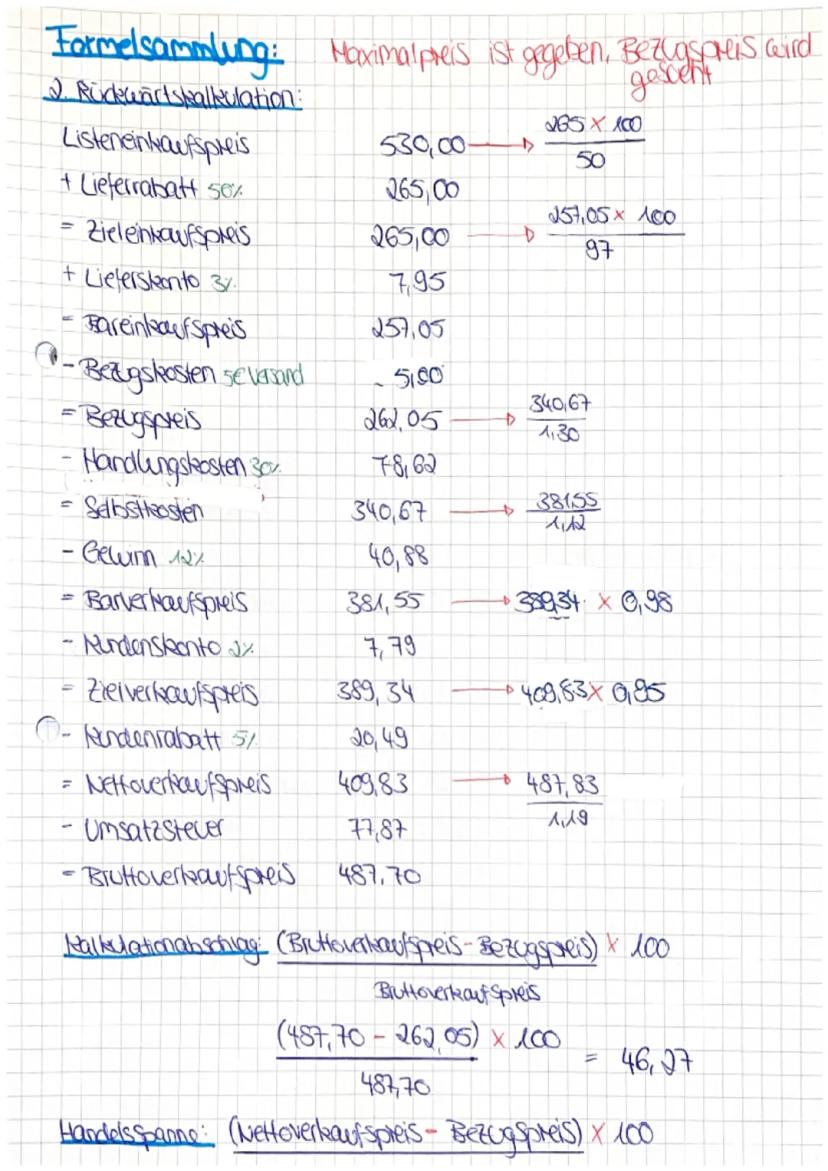 Formelsammlung: Maximalpreis ist gegeben, Bezugspreis wird
gesucht
2. Rückwärtskalkulation:
Listeneinkaufspreis 530,00 → 265 × 100 / 50
+ Lieferrabatt 50% 265,00
= Zieleinkaufspreis 265,00 → 257,05 × 100 / 97
+ Lieferskonto 3% 7,95
= Bareinkaufspreis 257,05
- Bezugskosten 5€ Versand - 5,00
= Bezugspreis 262,05 → 340,67 / 1,30
- Handlungskosten 30% 78,62
= Selbstkosten 340,67 → 381,55 / 1,12
- Gewinn 12% 40,88
= Barverkaufspreis 381,55 → 389,34 × 0,98
- Kundenskonto 2% 7,79
= Zielverkaufspreis 389,34 → 409,83 × 0,95
- Kundenrabatt 5% 20,49
= Nettoverkaufspreis 409,83 → 487,83 / 1,19
- Umsatzsteuer 77,87
= Bruttoverkaufspreis 487,70
Kalkulationabschlag: (Bruttoverkaufspreis - Bezugspreis) × 100
Bruttoverkaufspreis
(487,70 - 262,05) × 100 = 46,27
487,70
Handelsspanne: (Nettoverkaufspreis - Bezugspreis) × 100